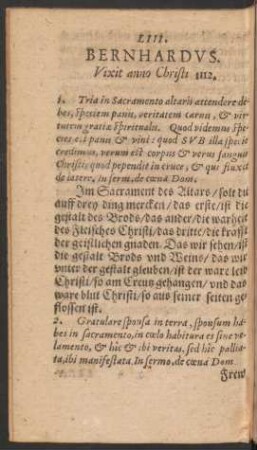 LIII.
BERNHARDVS.
Vixit anno Christi 1112.
1. Tria in Sacramento altaris attendere de-
bes, speciem panis, veritatem carnis, & vir-
tutem gratiæ spiritualis. Quod videmus spe-
cies est panis & vini: quod SVB illa specie
credimus, verum est corpus & verus sanguis
Christi, quod pependit in cruce, & qui fluxit
de latere, in serm. de cœna Dom.
Im Sacrament des Altars / solt du
auff drey ding mercken / das erste / ist die
gestalt des Brods / das ander / die warheit
des Fleisches Christi / das dritte / die krafft
der geistlichen gnaden. Das wir sehen / ist
die gestalt Brods und Weins / das wir
unter der gestalt gleuben / ist der ware leib
Christi / so am Creutz gehangen / und das
ware blut Christi / so aus seiner seiten ge-
flossen ist.
2. Gratulare sponsa in terra, sponsum ha-
bes in sacramento, in cœlo habitura es sine ve-
lamento, & hic & ibi veritas, sed hic pallia-
ta, ibi manifestata. In sermo. de cœna Dom
Frew